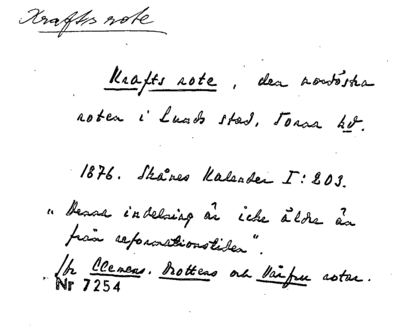 Krafts rote
Krafts rote, den nordöstra
roten i Lunds stad, Torna hd.
1876. Skånes Kalender I: 203.
"Denna indelning är icke äldre än
från reformationstiden".
Jfr Clemens, Drottens och Vårfru rotar.
Nr 7254